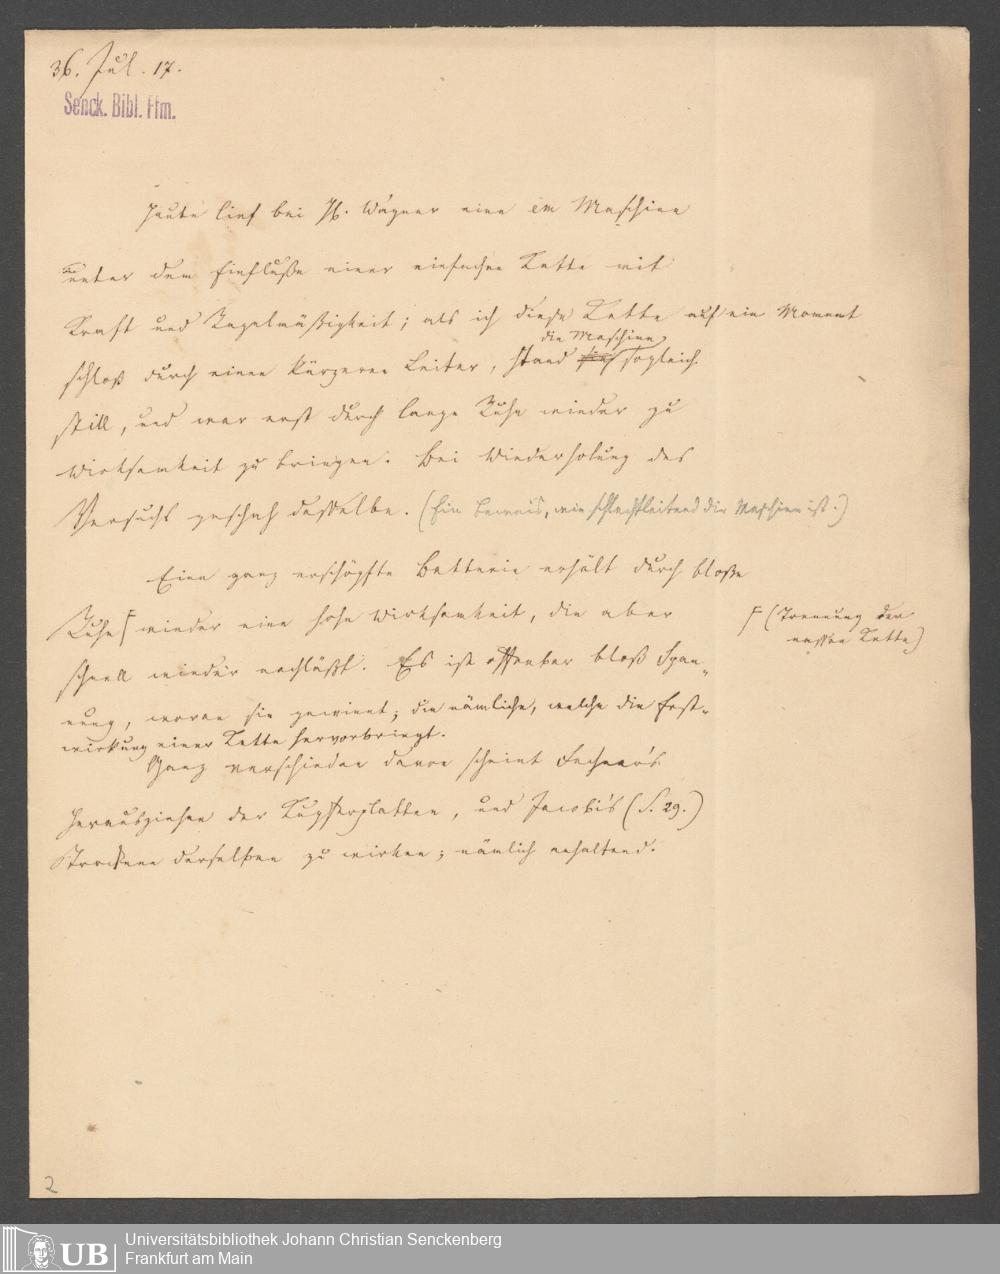 36. Jul. 17.
Senck. Bibl. Ffm.
Heute lief bei Ph. Wagner eine em Maschine
unter dem Einfluße einer einfachen Kette mit
Kraft und Regelmäßigkeit; als ich diese Kette auf ein Moment
schloß durch einen kürzeren Leiter, stand die Maschine sogleich
still, und war erst durch lange Ruhe wieder zu
Wirksamkeit zu bringen. Bei Wiederholung des
Versuchs geschah dasselbe. (Ein Beweis, wie schlechtleitend die Maschine ist.)
Eine ganz erschöpfte Batterie erhält durch bloße
Ruhe F wieder eine hohe Wirksamkeit, die aber
F (Trennung der
nassen Kette)
schnell wieder nachläßt. Es ist offenbar bloß Span-
nung, woran sie gewinnt; die nämliche, welche die Erst-
wirkung einer Kette hervorbringt.
Ganz verschieden davon scheint Fechner's
Herausziehen der Kupferplatten, und Jacobi's (S. 29.)
Trocknen derselben zu wirken; nämlich anhaltend.
2
UB
Universitätsbibliothek Johann Christian Senckenberg
Frankfurt am Main